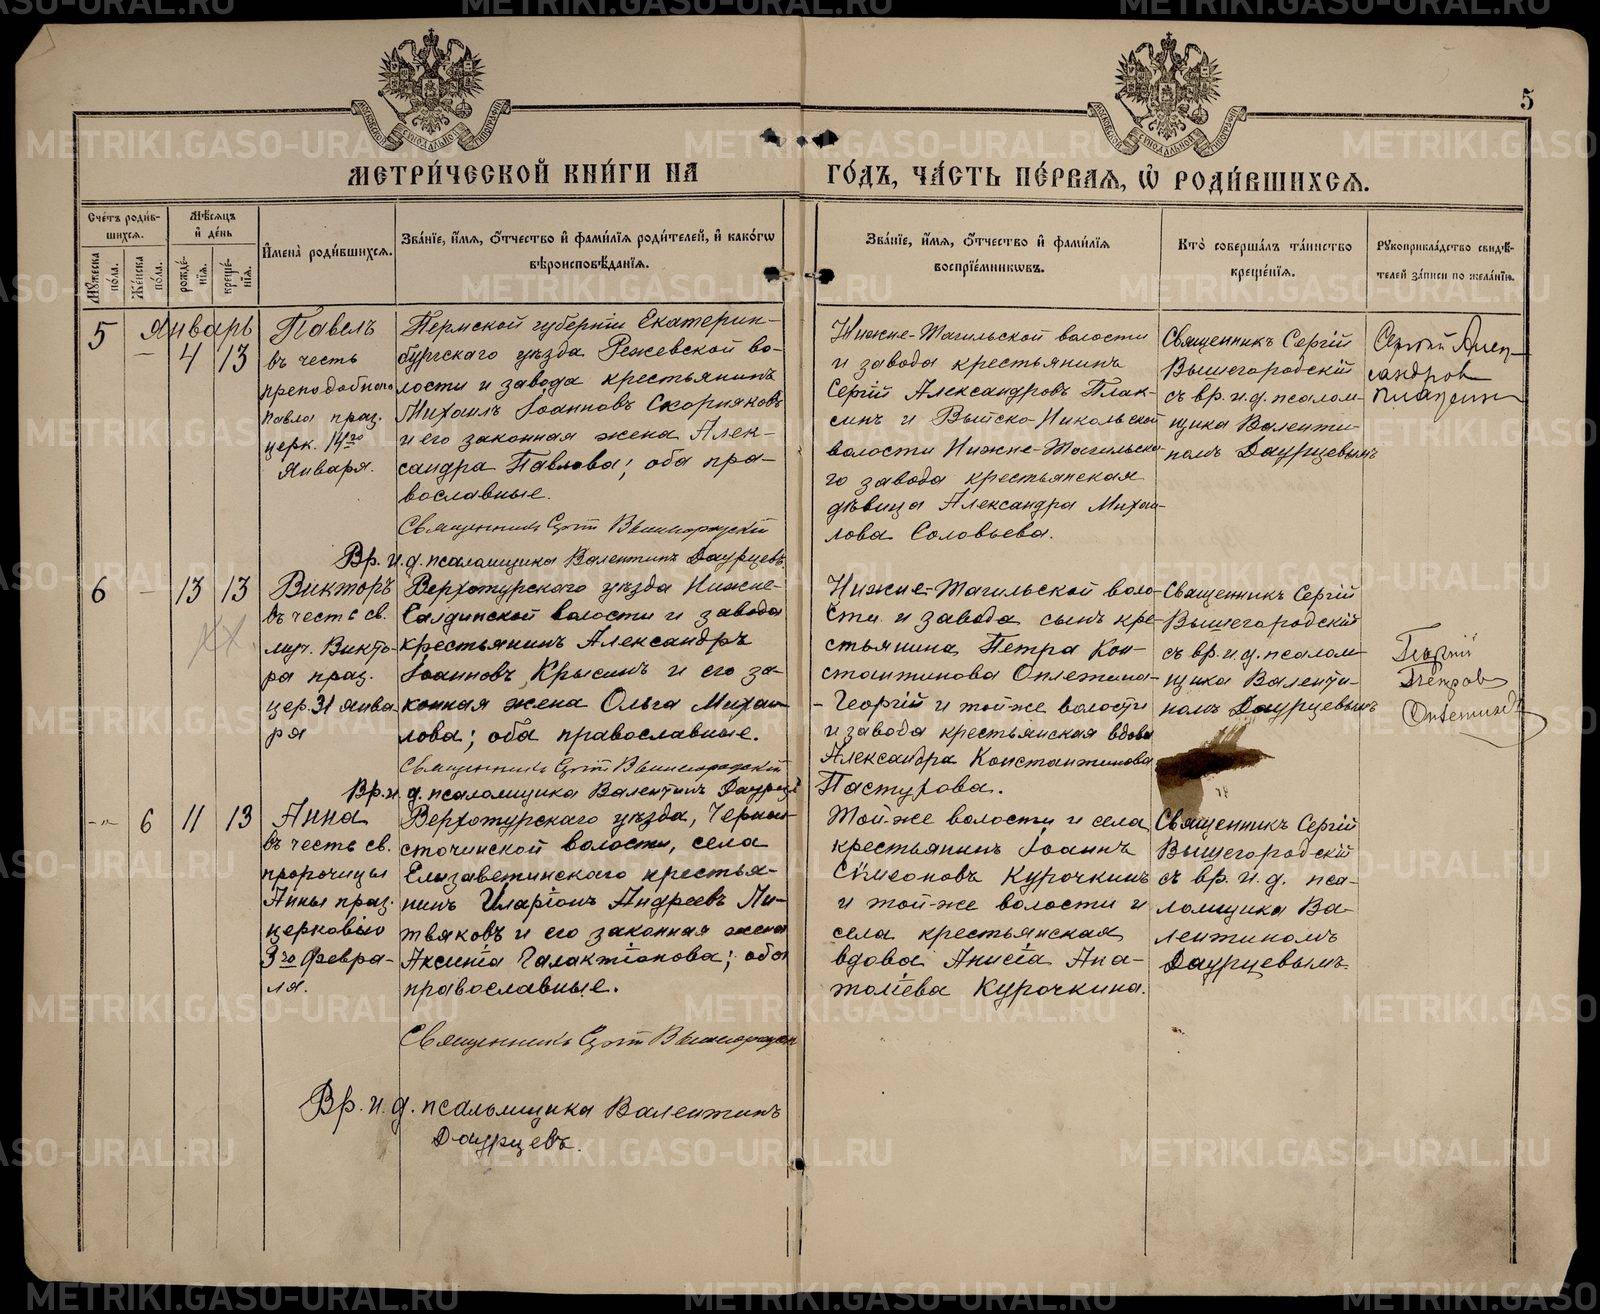 5
МЕТРИ́ЧЕСКОЙ КНИ́ГИ НА
ГО́ДЪ, ЧА́СТЬ ПЕ́РВАЯ, Ѡ҆ РОДИ́ВШИХСЯ.
Сче́тъ роди́в-
шихся.
Мѣ́сяцъ
и҆ де́нь
Мꙋ́жеска по́ла.
Же́нска по́ла.
рожде́-
нїя.
креще́-
нїя.
И҆мена̀ роди́вшихся.
Зва́нїе, и҆́мя, ѻ҆́тчество и҆ фами́лїя роди́телей, и҆ како́гѡ
вѣроисповѣ́данїя.
Зва́нїе, и҆́мя, ѻ҆́тчество и҆ фами́лїя
воспрїе́мникѡвъ.
Кто̀ соверша́лъ та́инство
креще́нїя.
Рꙋкоприкла́дство свидѣ́-
телей за́писи по жела́нїю.
5 — Январь
4 13
Павелъ
въ честь
преподобнаго
Павла праз.
церк. 14го
Января.
Пермской губерніи Екатерин-
бургскаго уѣзда Режевской во-
лости и завода крестьянинъ
Михаилъ Іоанновъ Скорняковъ
и его законная жена Алек-
сандра Павлова; оба пра-
вославные.
Священникъ Сергій Вышегородскій
Вр. и. д. псаломщика Валентинъ Даурцевъ.
Нижне-Тагильской волости
и завода крестьянинъ
Сергій Александровъ Плак-
синъ и Выйско-Никольской
волости Нижне-Тагильска-
го завода крестьянская
дѣвица Александра Михаи-
лова Соловьева.
Священникъ Сергій
Вышегородскій
съ вр. и. д. псалом-
щика Валенти-
номъ Даурцевымъ
Сергий Алек-
сандров
Плаксин
6 — 13 13
Викторъ
въ честь св.
муч. Викто-
ра праз.
цер. 31 янва-
ря
Верхотурскаго уѣзда Нижне-
Салдинской волости и завода
крестьянинъ Александръ
Іоанновъ Крысинъ и его за-
конная жена Ольга Михаи-
лова; оба православные.
Священникъ Сергій Вышегородскій
Вр. и. д. псаломщика Валентинъ Даурцевъ
Нижне-Тагильской воло-
сти и завода сынъ кре-
стьянина Петра Кон-
стантинова Оплетина-
- Георгій и той-же волости
и завода крестьянская вдова
Александра Константинова
Пастухова.
Священникъ Сергій
Вышегородскій
съ вр. и. д. псалом-
щика Валенти-
номъ Даурцевымъ
Георгій
Петров
XX.
-„- 6 11 13
Анна
въ честь св.
пророчицы
Анны праз.
церковью
3го Февра-
ля.
Верхотурскаго уѣзда, Черно-
сточинской волости, села
Елизаветинскаго крестья-
нинъ Иларіонъ Андреевъ Ли-
твяковъ и его законная жена
Аксинія Галактіонова; оба
православные.
Священникъ Сергій Вышегородскій
Вр. и. д. псаломщика Валентинъ
Даурцевъ.
Той-же волости и села
крестьянинъ Іоаннъ
Симеоновъ Курочкинъ
и той-же волости и
села крестьянская
вдова Анисія Ана-
толіева Курочкина.
Священникъ Сергій
Вышегородскій
съ вр. и. д. пса-
ломщика Ва-
лентиномъ
Даурцевымъ.
METRIKI.GASO-URAL.RU